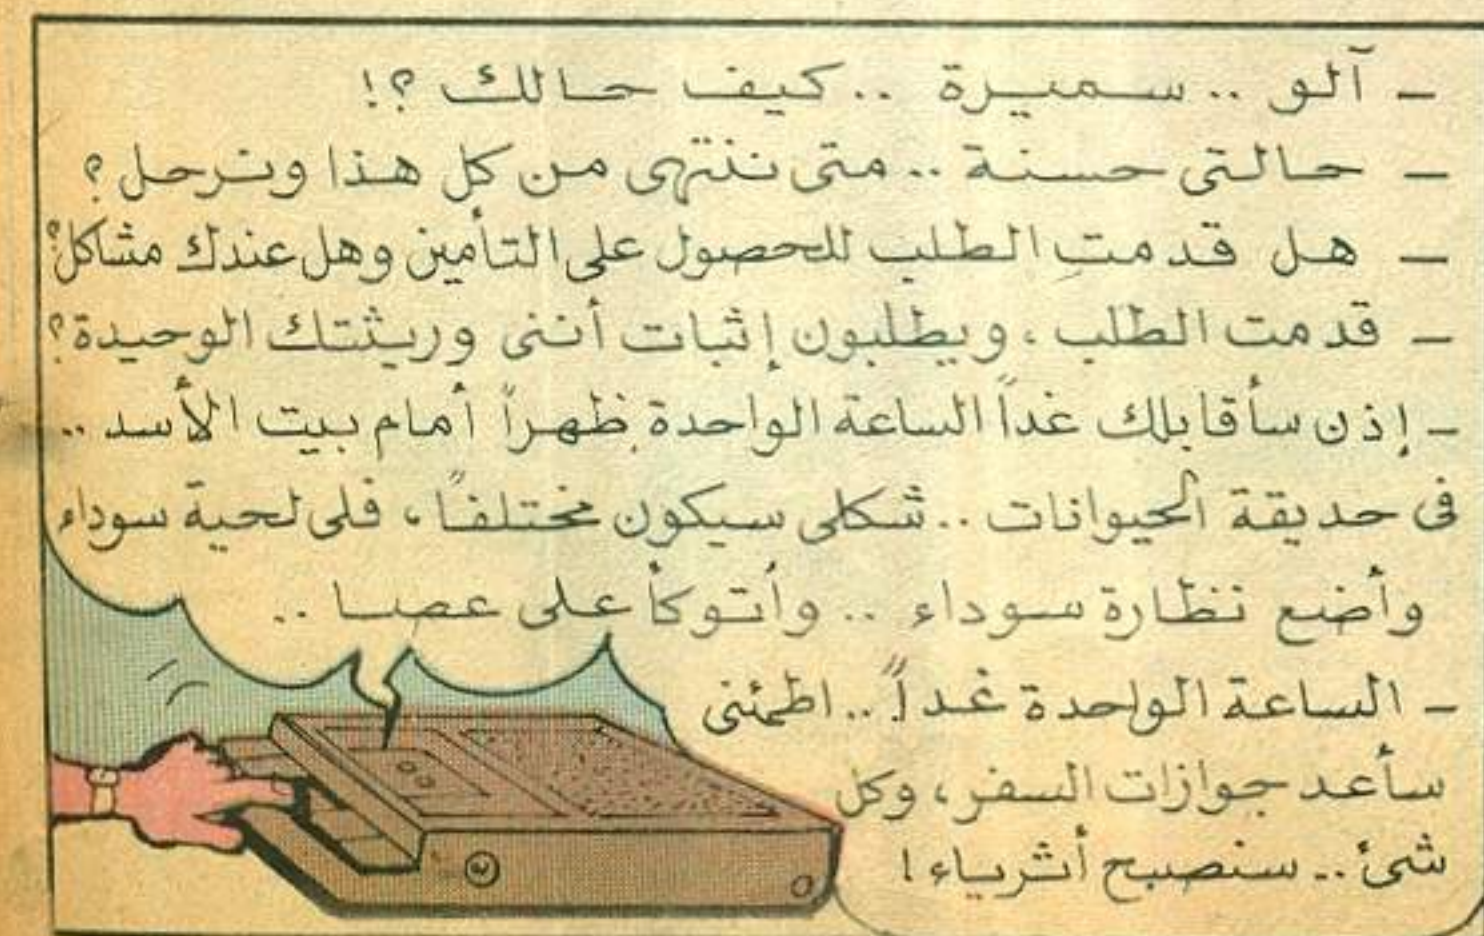 - آلو .. سميرة .. كيف حالك ؟!
- حالتى حسنة .. متى ننتهى من كل هذا ونرحل ؟
- هل قدمتِ الطلب للحصول على التأمين وهل عندك مشاكل؟
- قدمت الطلب ، ويطلبون إثبات أننى وريثتك الوحيدة؟
- إذن سأقابلك غداً الساعة الواحدة ظهراً أمام بيت الأسد ..
فى حديقة الحيوانات .. شكلى سيكون مختلفاً ، فلى لحية سوداء
وأضع نظارة سوداء .. وأتوكأ على عصا ..
- الساعة الواحدة غداً .. اطمئنى
سأعد جوازات السفر ، وكل
شئ .. سنصبح أثرياء !